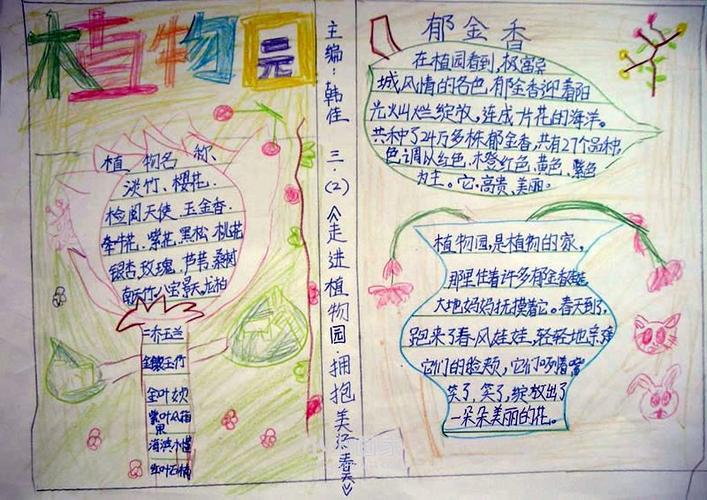 植物园
植物名称
淡竹、樱花、
检阅天使、玉金香、
牵牛花、紫花、黑松、桃花
银杏、玫瑰、芦苇、桑树
南天竹、八宝景天、龙柏
二乔玉兰
金镶玉竹
金叶女贞
紫叶风箱
果
海滨木槿
红叶石楠
主编:韩佳 三·(2)《走进植物园 拥抱美 春天》
郁金香
在植园看到,极富异
城风情的各色郁金香迎着阳
光火山烂绽放,连成片花的海洋。
共种了24万多株郁金香,共有27个品种,
色调以红色,木橙红色,黄色,紫色
为主。它高贵、美丽。
植物园,是植物的家,
那里住着许多郁金香
大地妈妈抚摸着它。春天到了,
跑来了春风娃娃,轻轻地亲
它们的脸颊,它们
笑了,笑了,绽放出了
一朵朵美丽的花。